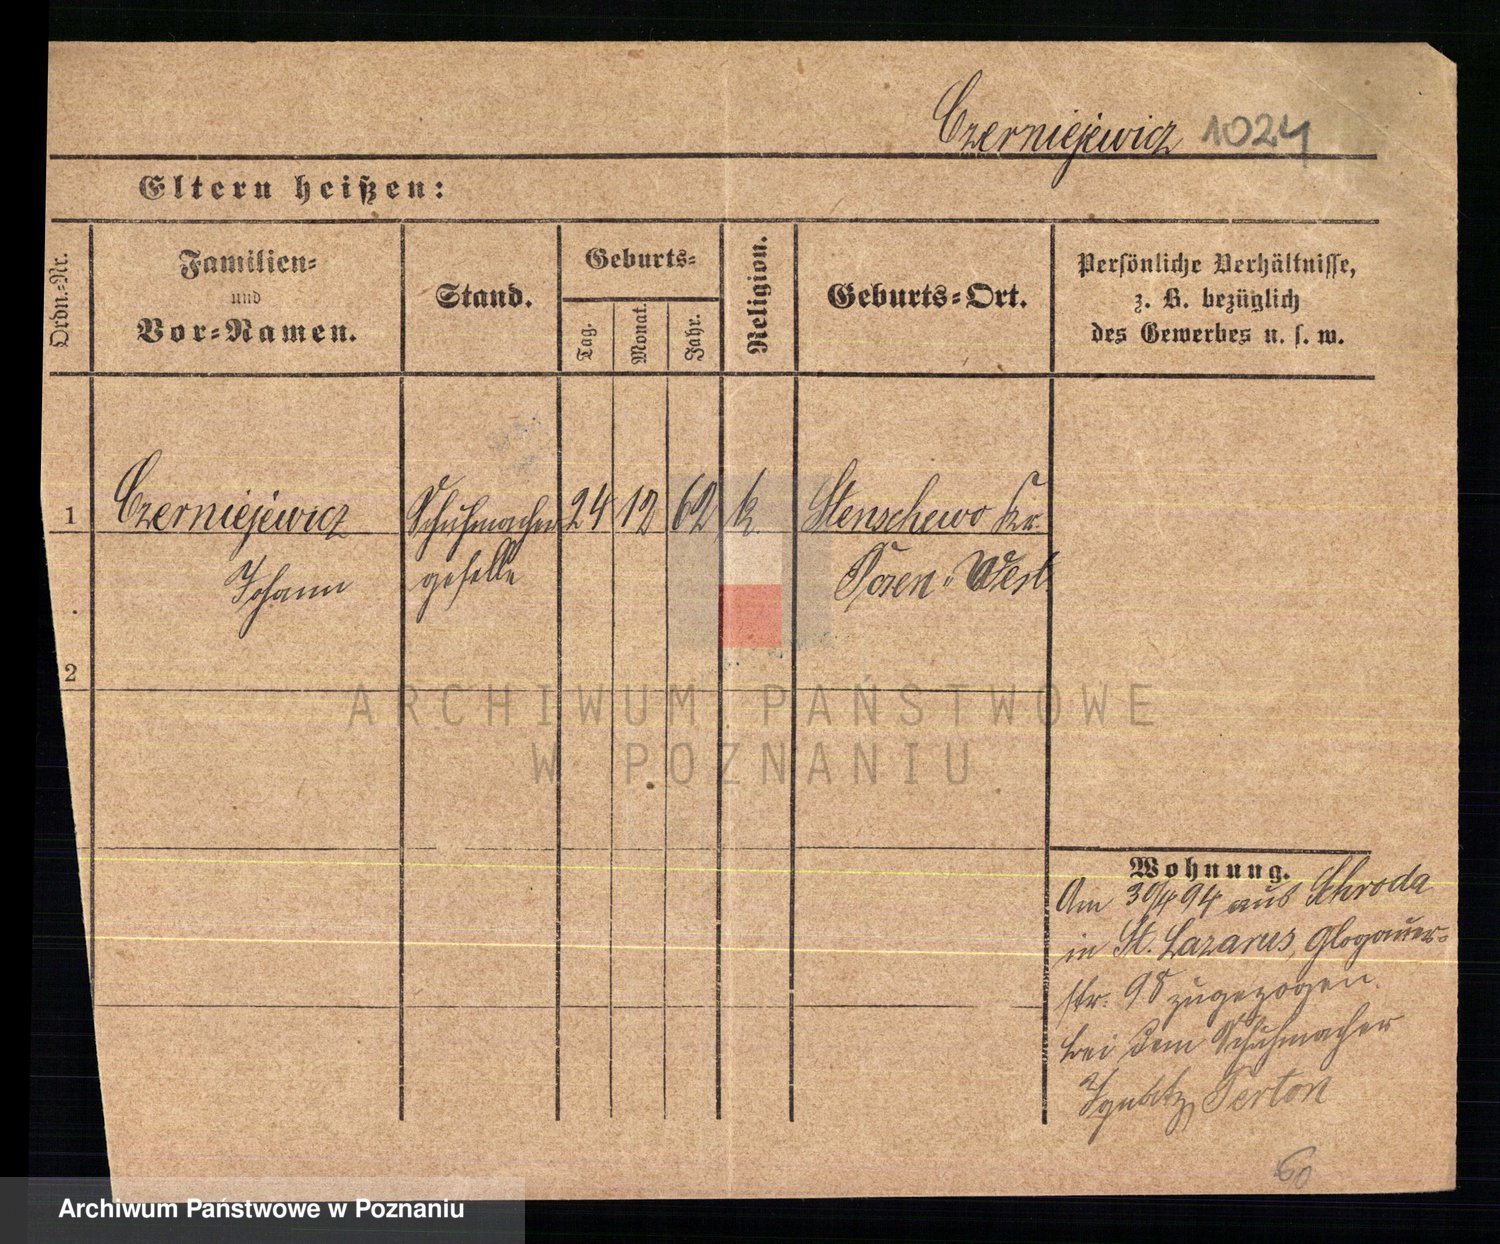 Czerniejewicz 1024
Eltern heißen:
Ordn.-Nr.
Familien-
und
Vor-Namen.
Stand.
Geburts-
Tag.
Monat.
Jahr.
Religion.
Geburts-Ort.
Persönliche Verhältnisse,
z. B. bezüglich
des Gewerbes u. s. w.
1 Czerniejewicz Schuhmacher 24 12 62 k. Stenschewo Kr.
Johann geselle Posen-West
2
ARCHIWUM PAŃSTWOWE
W POZNANIU
Wohnung.
Am 30/4 94 aus Schroda
in St. Lazarus, Glogauer-
str. 98 zugezogen.
bei dem Schuhmacher
60
Archiwum Państwowe w Poznaniu